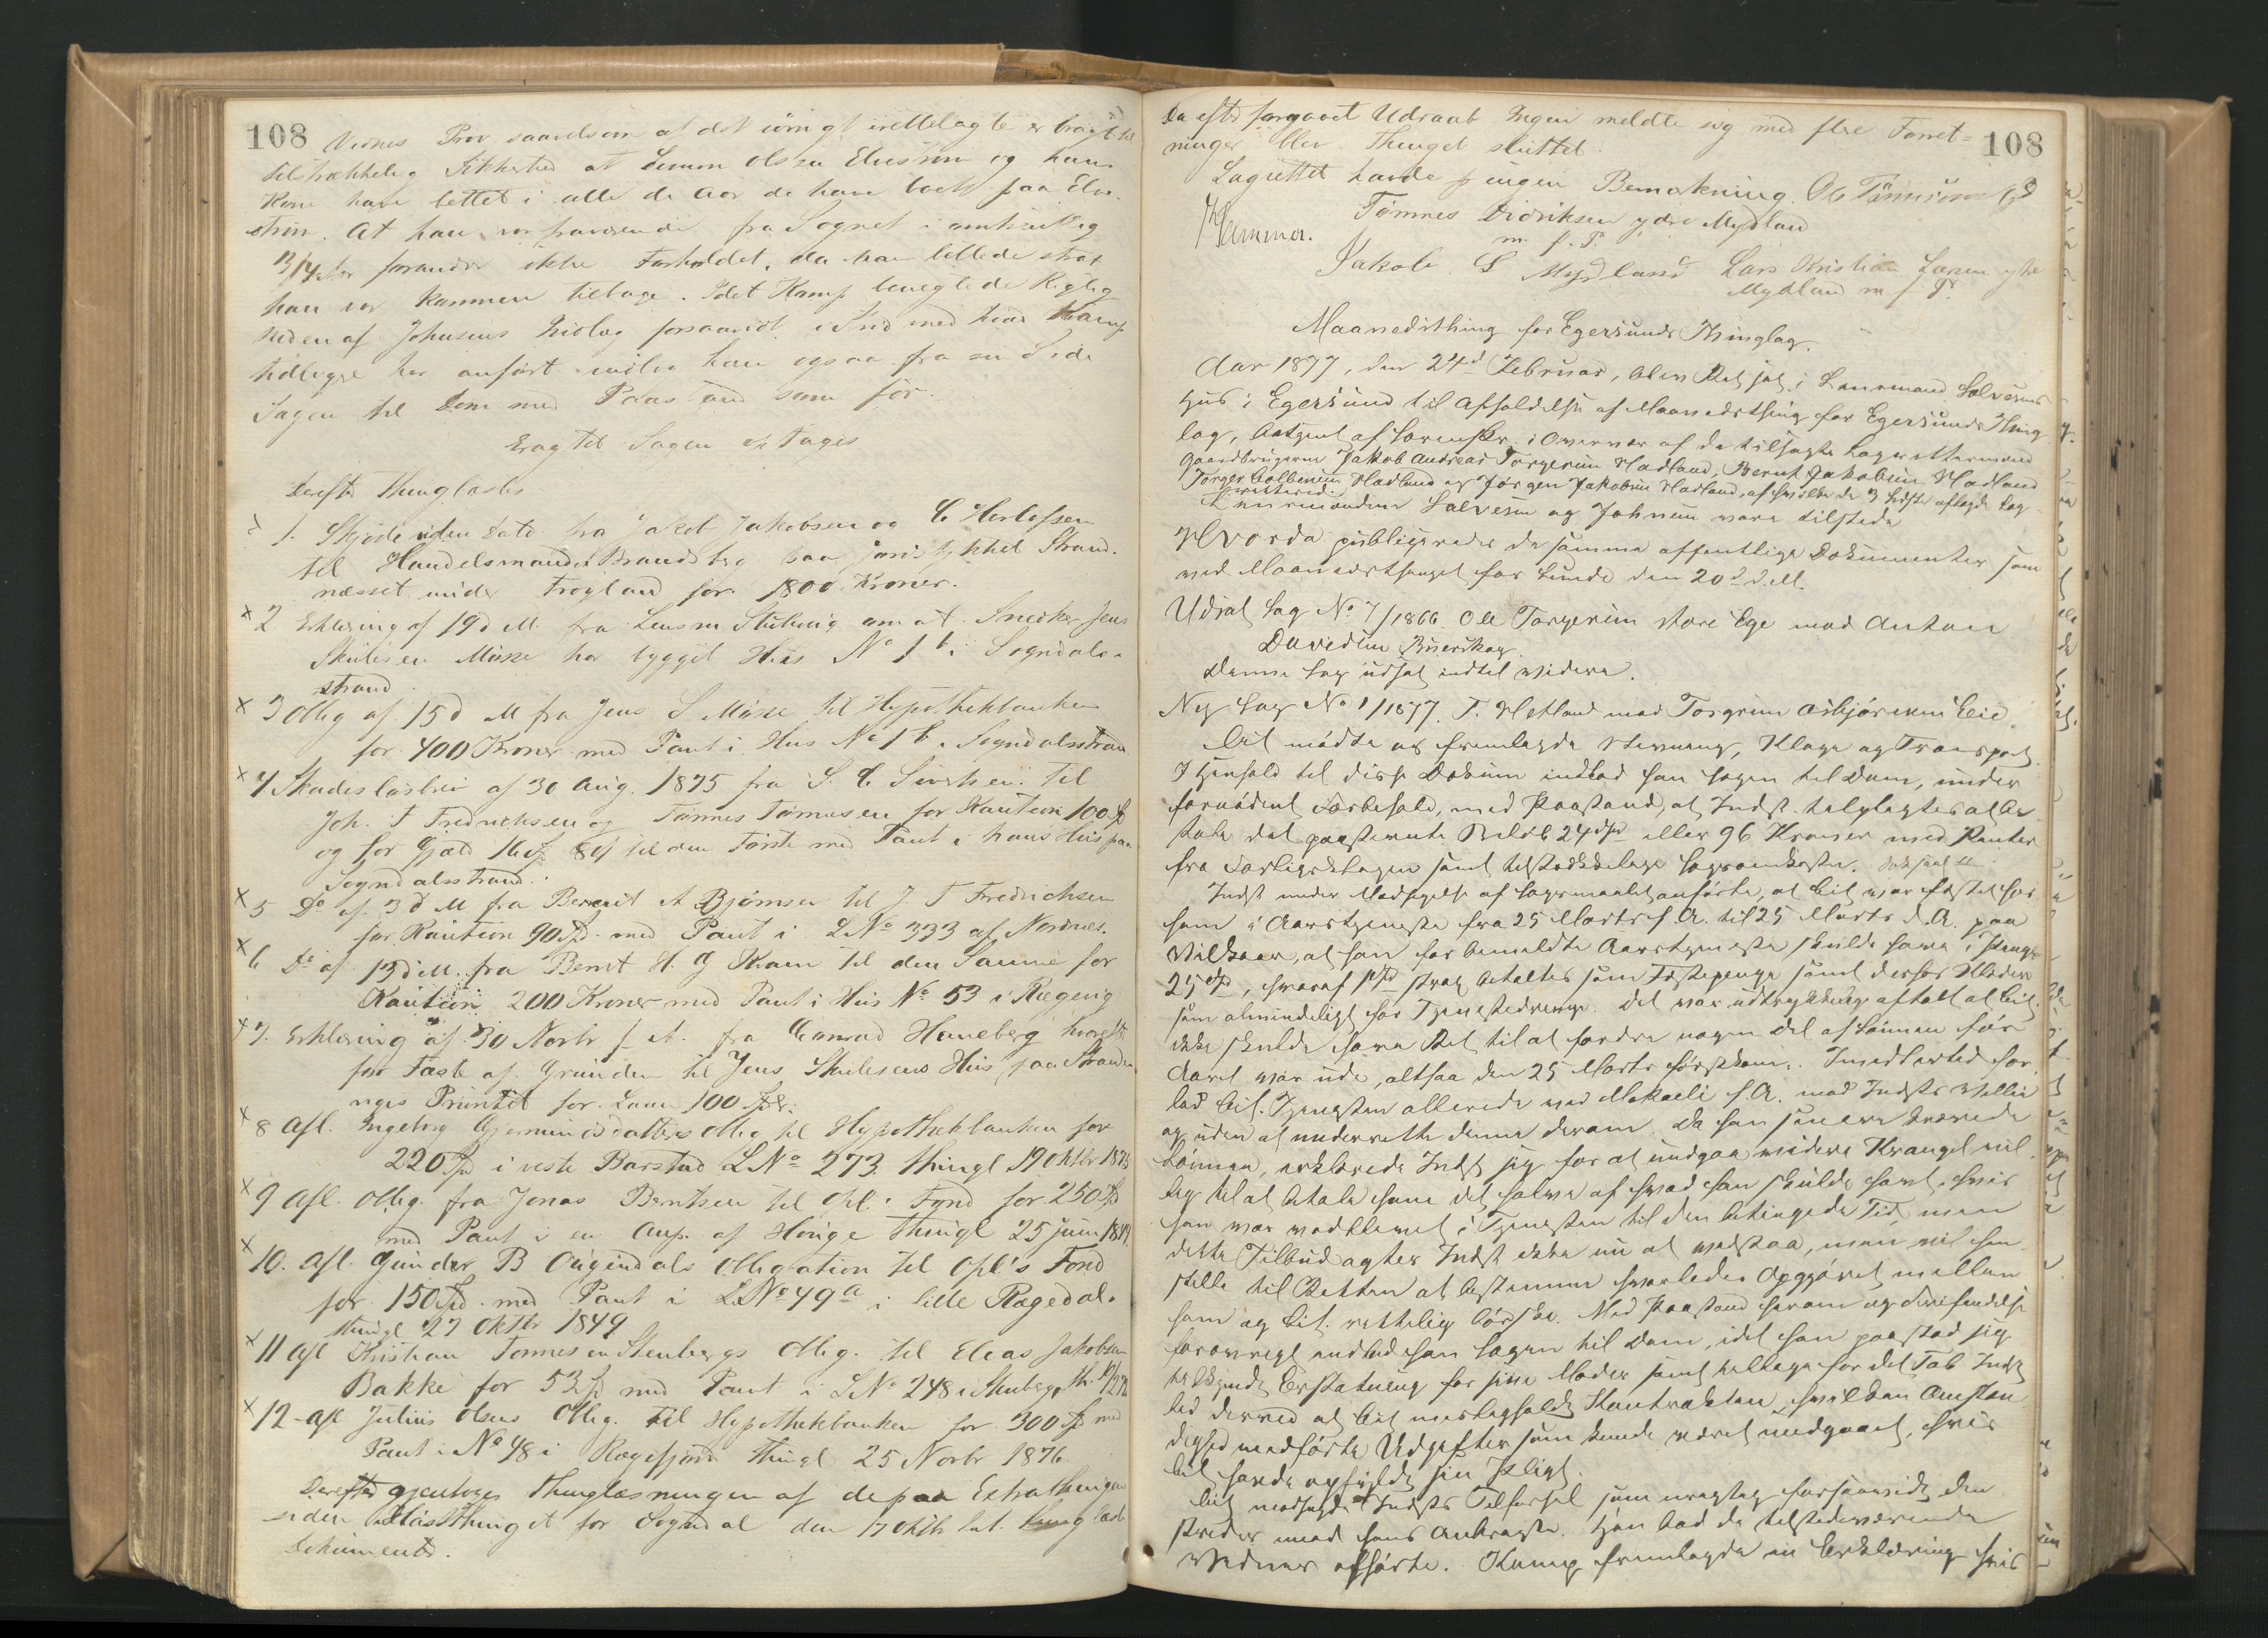 108 Vidnes Prov saavelsom at det iövrigt irettelagte er bragt til
tilstrækkelig Sikkerhed at Simon Olsen Elvestrøm og hans
Kone have lettet i alle de Aar de have boet paa Elve-
strøm. At han var fraværende fra Sognet i omtrent
forandrer ikke Forholdet, da han lettede strax
han var kommen tilbage. Idet Kamp benegtede Rigtig
heden af Johnsens Indlæg forsaavidt i Strid med hvad Kamp
tidligere har anført indlod han ogsaa fra sin Side
Sagen til Dom med Paastand som før.
Eragtet Sagen optages
Derefter Thinglæstes
1. Skjøde uden Dato fra Jakob Jakobsen og C Herlofsen
til Handelsmand Brandsberg paa Jordstykket Strand-
næsset under Frøyland for 1800 Kroner.
x 2 Erklæring af 19 d M. fra Lensm Stuhaug om at Snedker Jens
Skulesen Mosse har bygget Huus No 1 b i Sogndals-
strand.
x 3 Oblig af 15 d M fra Jens S Mosse til Hypothekbanken
for 400 Kroner med Pant i Hus No 1 b i Sogndalsstrand
x 4 Skadesløsbrev af 30 Aug. 1875 fra S. C Sivertsen til
Joh. F Fredrichsen og Tønnes Tønnesen for Kaution 100 Spd
og for Gjæld 16 Spd til den Første med Pant i hans Huus paa
Sogndalsstrand.
x 5 Do af 3 d M fra Berent A Bjørnsen til J F Fredrichsen
for Kaution 90 Spd med Pant i LNo 333 af Nordnes.
x 6 Do af 13 d M. fra Bernt H. G Kram til den Samme for
Kaution 200 Kroner med Pant i Hus No 53 i Rægevig
x 7. Erklæring af 30 Novbr f A. fra Conrad Haneberg hvorefter
for Fæste af Grunden til Jens Skulesens Huus paa Strande
nyes Prioritet for Laan 100 Spd.
x 8 Afl. Ingeborg Gjermundsdatters Oblig til Hypothekbanken for
220 Spd i vestre Barstad LNo 273 thingl 19 Oktbr 1875
x 9 Afl. Oblig. fra Jonas Berntsen til Opl. Fond for 250 Spd
med Pant i en Anp. af Hauge thingl 25 Juni 1849.
x 10. Afl. Gunder B Ougendals Obligation til Opl's Fond
for 150 Spd med Pant i LNo 49 a i lille Rægedal.
thingl 27 Oktbr 1849
x 11 Afl Kristian Tønnesen Stenbergs Oblig. til Elias Jakobsen
Bakke for 53 Spd med Pant i LNo 248 i Stenberg, th.
x 12 Afl Julius Olsens Oblig. til Hypothekbanken for 300 Spd med
Pant i No 48 i Rægefjord thingl 25 Novbr 1876.
Derefter gjentoges Thinglæsningen af de paa Extrathingene
siden Høstthinget for Sogndal den 17 Oktbr læste
Dokumenter.
Da efter foregaaet Udraab Ingen meldte sig med flere Forret-
ninger blev Thinget sluttet. 108
Lagrettet havde ingen Bemærkning. Ole Tønnesen
Hammer. Tønnes Didriksen ydre Mydland
m. f. P.
Jakob S Mydland Lars Kristian Larsen ytre
Mydland m f P.
Maanedsthing for Egersunds Thinglag.
Aar 1877, den 24de Februar, blev Ret sat i Lensmand Salvesens
Hus i Egersund til Afholdelse af Maanedsthing for Egersunds Thing
lag, betjent af Sorenskr. i Overvær af de tilsagte Lagrettesmænd
Gaardbrugerne Jakob Andreas Torgersen Hadland, Bernt Jakobsen Hadland
Torger Kolbensen Hadland og Jörgen Jakobsen Hadland, af hvilke de 3 sidste aflagde Lag
retteseed.
Lensmændene Salvesen og Johnsen vare tilstede
Hvorda publiceredes de samme offentlige Dokumenter som
ved Maanedsthinget for Lunde den 20de d. M.
Udsat Sag No 7/1866. Ole Torgersen store Ege mod Anton
Davidsen Buerskog.
Denne Sag udsat indtil videre.
Ny Sag No 1/1877. T. Hetland mod Torgrim Asbjörnsen Eie.
Cit mödte og fremlagde Stevning, Klage og Transport
I Henhold til disse Dokum indlod han Sagen til Dom, under
fornödent Forbehold, med Paastand, at Indst tilpligtes at be-
tale det paastevnte Belöb 24 Spd eller 96 Kroner med Renter
fra Forligsklagen samt tilstrækkelige Sagsomkostn.
Indst under Modsigelse af Sagsmaalet anförte, at Cit var fæstet hos
ham i Aarstjeneste fra 25 Marts f. A. til 25 Marts d. A. paa
Vilkaar, at han for bemeldte Aarstjeneste skulde have i Penge
25 Spd, hvoraf 1 Spd strax betaltes som Fæstepenge samt derhos Klæder
som almindeligt for Tjenestedrenge. Det var udtrykkelig aftalt at Cit.
ikke skulde have Ret til at fordre nogen Del af Lönnen för
Aaret var ude, altsaa den 25 Marts förstkom. Imidlertid for-
lod Cit. Tjenesten allerede ved Mikaeli f. A. mod Indsts Villie
og uden at underrette denne derom. Da han senere krævede
Lönnen, erklærede Indst sig for at undgaa videre Krangel vil-
lig til at betale ham det halve af hvad han skulde havt, hvis
han var vedblevet i Tjenesten til den betingede Tid, men
dette Tilbud agter Indst ikke nu at vedstaa, men vil hen-
stille til Retten at bestemme hvorledes Opgjöret mellem
ham og Cit. rettelig bör ske. Med Paastand herom og Frifindelse
forövrigt indlod han Sagen til Dom, idet han paastod sig
tilkjendt Erstatning for sine Möder samt tillige for det Tab Indst
led derved at Cit misligholdt Kontrakten, hvilken Omstæn
dighed medförte Udgifter som kunde været undgaaet, hvis
Cit havde opfyldt sin Pligt.
Cit modsagde Indsts Tilförsel som urigtig forsaavidt den
strider mod hans Anbragte. Han bad de tilstedeværende
Vidner afhörte. Kamp fremlagde en Erklæring hvis